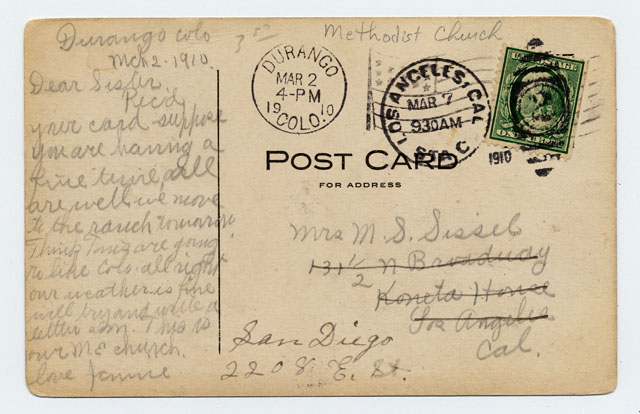 Durango Colo
Mch 2 - 1910.
Dear Sister,
Recd
your card suppose
you are having a
fine time, all
are well we move
to the ranch tomorrow.
Think I
are going
to like Colo. all right
our weather is fine
will try and write a
letter soon. This is
our M.E church.
love Jennie
Methodist Church
DURANGO
MAR 2
4-PM
1910
COLO.
LOS ANGELES, CAL
MAR 7
930AM
STA. C
1910
POST CARD
FOR ADDRESS
Mrs M. S. Sissel
131 1/2 N Broadway
Koneta House
Los Angeles
Cal.
San Diego
2208 E. St.